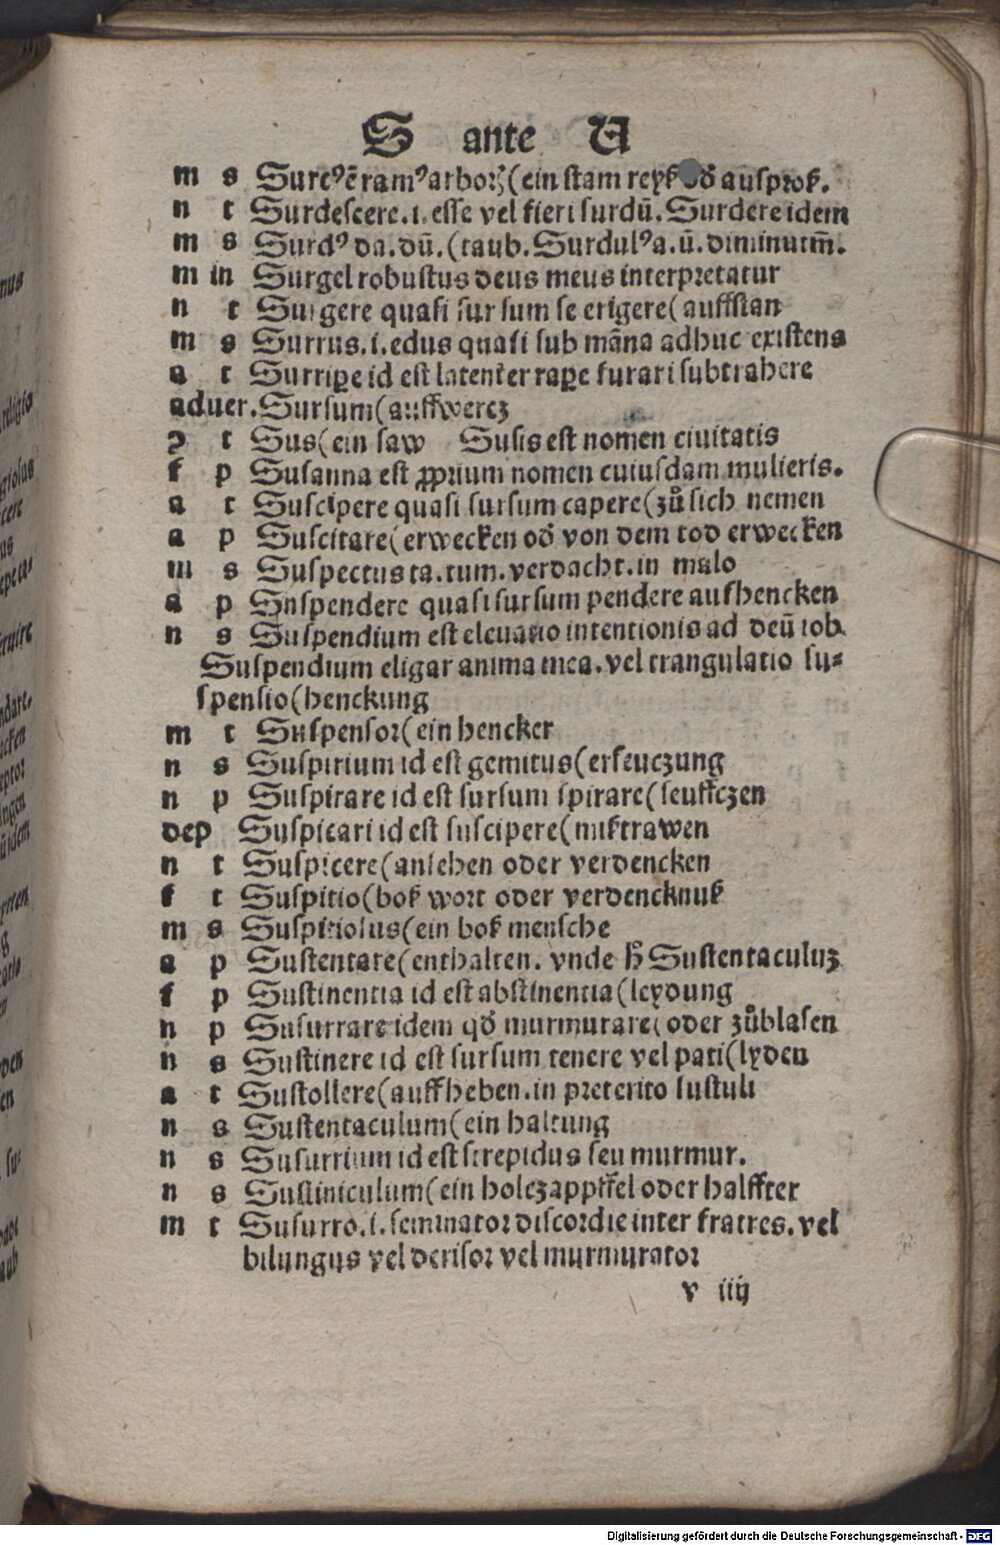 S ante U
m s Surcꝰ ē ramꝰ arboꝝ (ein stam reyß od̄ ausproß.
n t Surdescere .i. esse vel fieri surdū. Surdere idem
m s Surdꝰ da. dū. (taub. Surdulꝰ a. ū. diminutiū.
m in Surgel robustus deus meus interpretatur
n t Surgere quasi sursum se erigere (auffstan
m s Surrus .i. edus quasi sub māna adhuc existens
a t Surriꝑe id est latenter raꝑe furari subtrahere
aduer. Sursum (auffwercz
ↄ t Sus (ein saw Susis est nomen ciuitatis
f p Susanna est ꝓprium nomen cuiusdam mulieris.
a t Suscipere quasi sursum capere (zů sich nemen
a p Suscitare (erwecken od̄ von dem tod erwecken
m s Suspectus ta. tum. verdacht. in malo
a p Snspendere quasi sursum pendere aufhencken
n s Suspendium est eleuatio intentionis ad deū iob.
Suspendium eligar anima mea. vel trangulatio su⸗
spensio (henckung
m t Suspensor (ein hencker
n s Suspirium id est gemitus (erseuczung
n p Suspirare id est sursum spirare (seuffczen
dep Suspicari id est suscipere (mißtrawen
n t Suspicere (ansehen oder verdencken
f t Suspitio (boß wort oder verdencknuß
m s Suspitiosus (ein boß mensche
a p Sustentare (enthalten. vnde h̄ Sustentaculuꝫ
f p Sustinentia id est abstinentia (leydung
n p Susurrare idem qd̄ murmurare (oder zůblasen
n s Sustinere id est sursum tenere vel pati (lyden
a t Sustollere (auffheben. in preterito sustuli
n s Sustentaculum (ein haltung
n s Susurrium id est strepidus seu murmur.
n s Sustiniculum (ein holczappffel oder halffter
m t Susurro .i. seminator discordie inter fratres. vel
bilungus vel derisor vel murmurator
v iiij
Digitalisierung gefördert durch die Deutsche Forschungsgemeinschaft - DFG